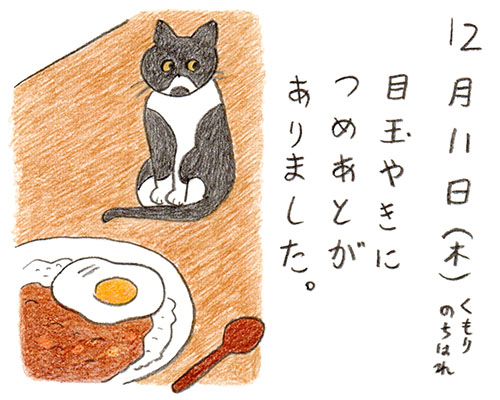 12月11日(木)くもりのちはれ
目玉やきに
つめあとが
ありました。